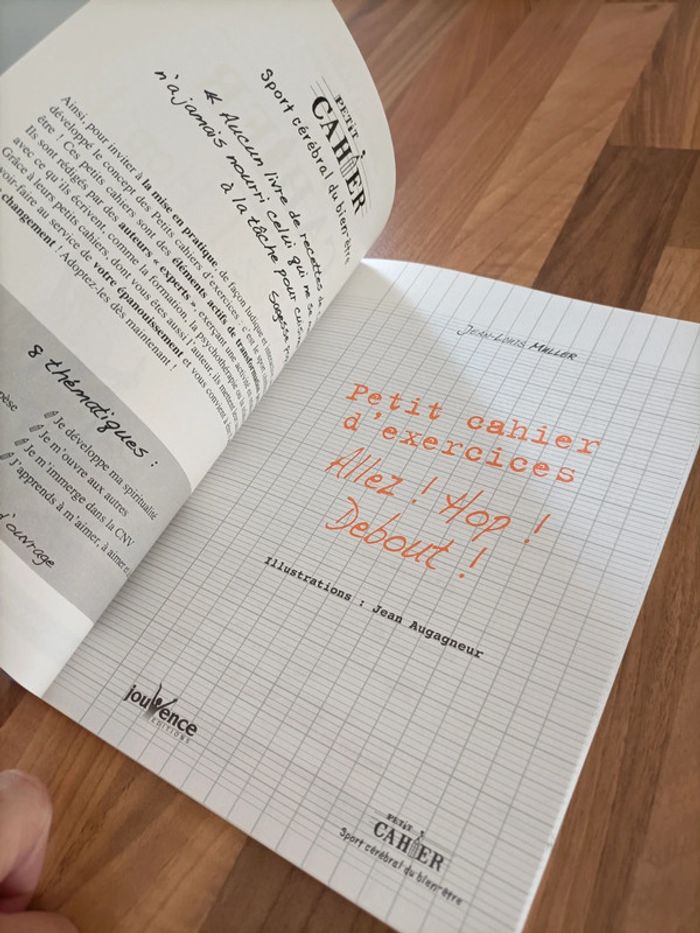 PETIT
CAHIER
Sport cérébral du bien-être
« Aucun livre de recettes de
n'a jamais nourri celui qui ne se
à la tâche pour
Sagesse
Ainsi, pour inviter à la mise en pratique, de façon ludique et
développé le concept des Petits cahiers d'exercices : c'est le sport
être ! Ces petits cahiers sont des éléments actifs de transformation
Ils sont rédigés par des auteurs « experts », exerçant une activité en
avec ce qu'ils écrivent, comme la formation, la psychothérapie ou
Grâce à leurs petits cahiers, dont vous êtes aussi l'auteur, ils mettent leur
voir-faire au service de votre épanouissement et vous convient à
changement ! Adoptez-les dès maintenant !
8 thématiques :
Je développe ma spiritualité
Je m'ouvre aux autres
Je m'immerge dans la CNV
J'apprends à m'aimer, à aimer et
d'ouvrage
JEAN-LOUIS MULLER
Petit cahier
d'exercices
Allez ! Hop !
Debout !
Illustrations : Jean Augagneur
jouvence
EDITIONS
PETIT
CAHIER
Sport cérébral du bien-être